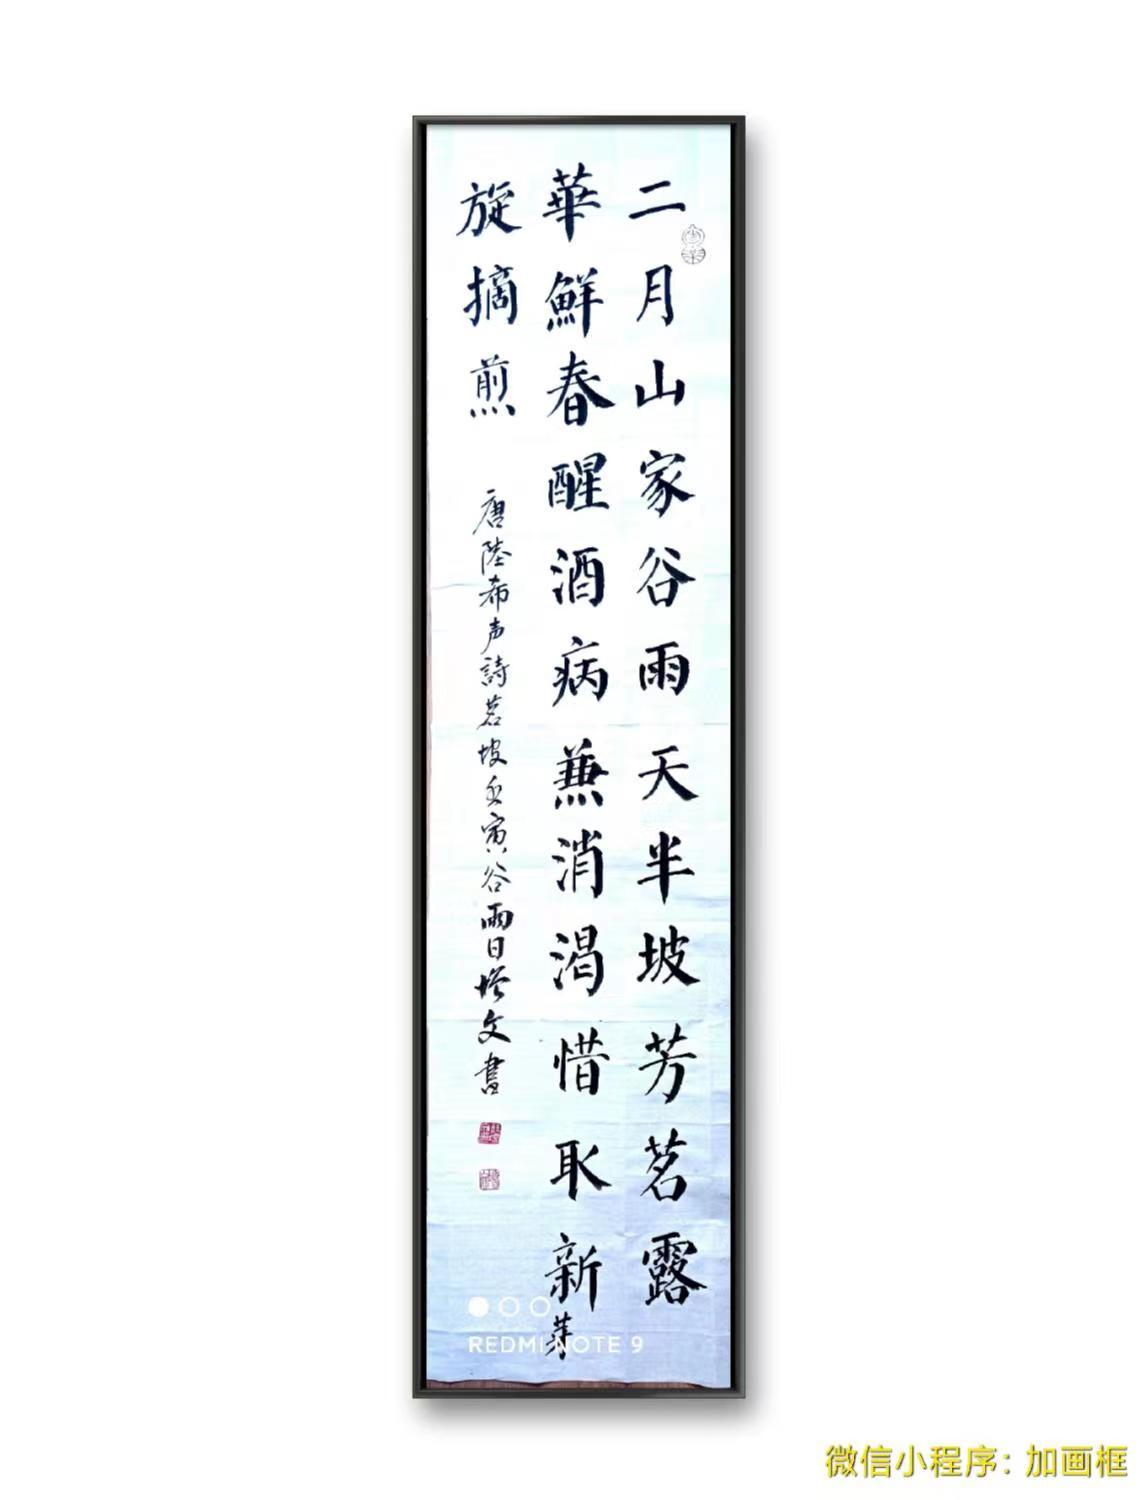 二月山家谷雨天半坡芳茗露
華鮮春醒酒病兼消渴惜取新
芽
旋摘煎
唐陸希声詩茗坡壬寅谷雨日培文書
REDMI NOTE 9
微信小程序：加画框